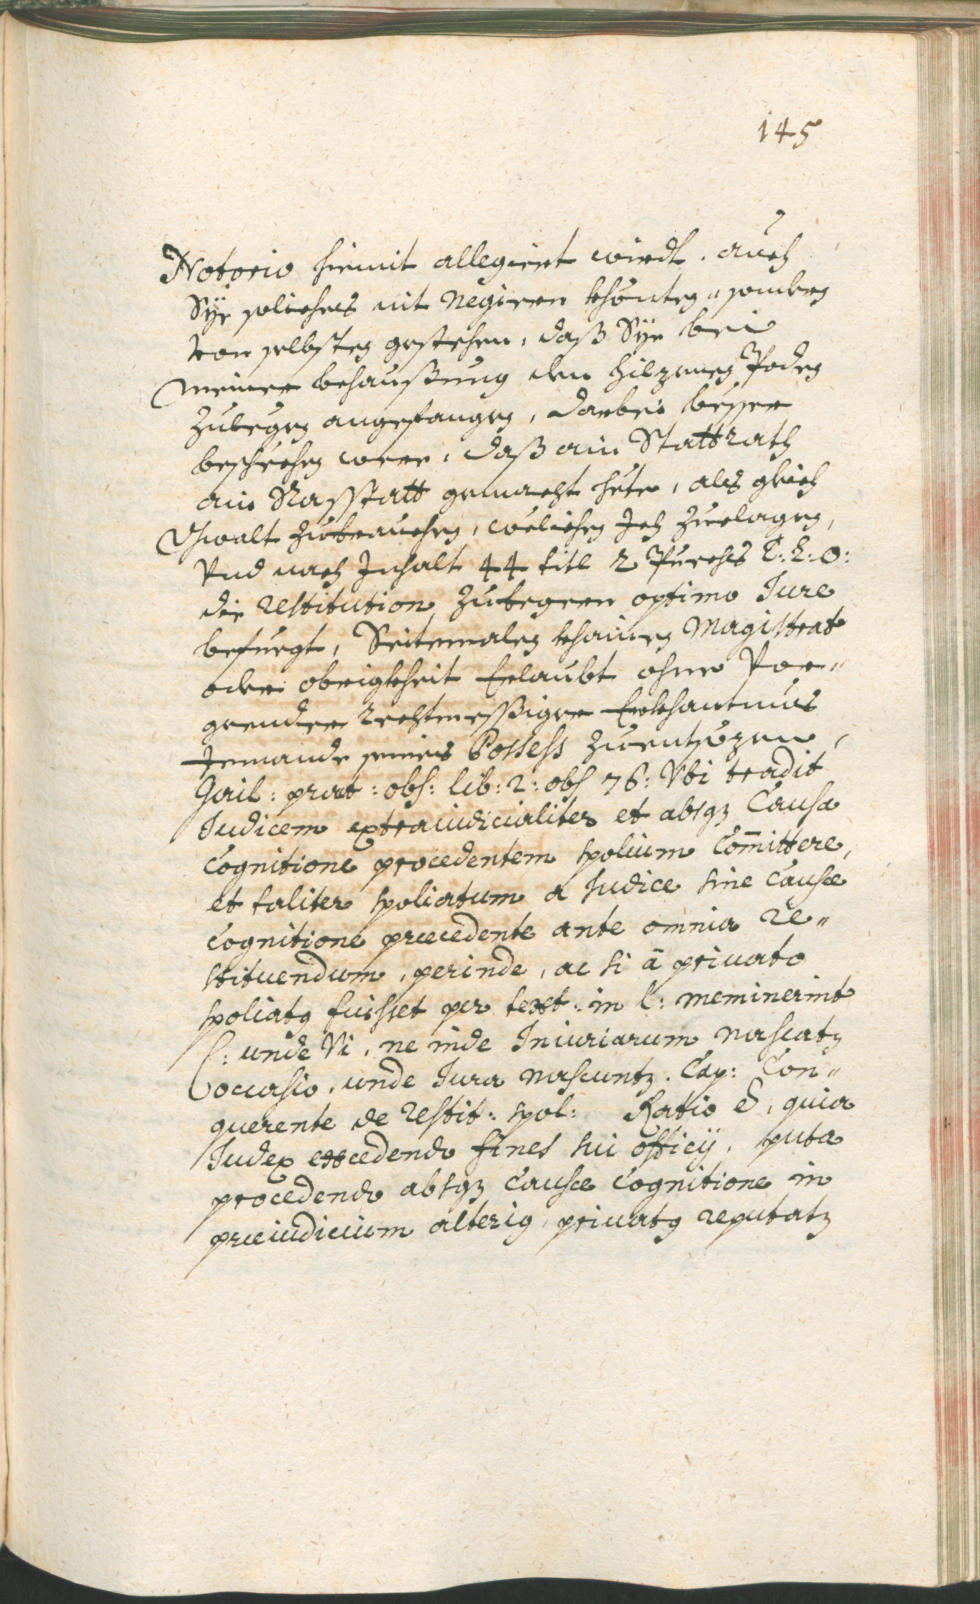 145
Notorio hiemit allegiert wirdt. auch
Sÿe soliches nit negiern khönten" sondern
von selbsten gestehen, daß Sÿe bei
meiner behaußung den hilzenen Poden
Zulegen angefangen, darbei besser
beschehen were, daß ain Stattrath
ain Rasstatt gemacht hete, als gleich
Gwalt Zubrauchen, welichen Ich Zuclagen,
Vnd nach Inhalt 44 titl 2 Puechs T: L: O:
die restitution Zubegern optimo Iure
befuegt, Seitemalen khainen Magistrat
oder obrigkheit Erlaubt ohne Vor"
geender rechtmessiger Erkhantnus
Jemande seines Possess Zuentsezen,
Gail: pract: obs: lib: 2: obs 76: Vbi tradit
Iudicem extraiudicialiter et absqȝ Causæ
Cognitione procedentem spolium Com̄ittere,
et taliter spoliatum a Iudice sine Causæ
cognitione præcedente ante omnia re"
stituendum, perinde, ac si â priuato
spoliatꝯ fuisset per text: in l: meminerint
C: unde Vi, ne inde Iniuriarum nascatȝ
occasio, unde Iura nascuntȝ. Cap: Con"
querente de restit: spol: Ratio ē, quia
Iudex excedendo fines sui officÿ, puta
procedendo absqȝ Causæ Cognitione in
præiudicium alteriꝯ, priuatꝯ reputatȝ